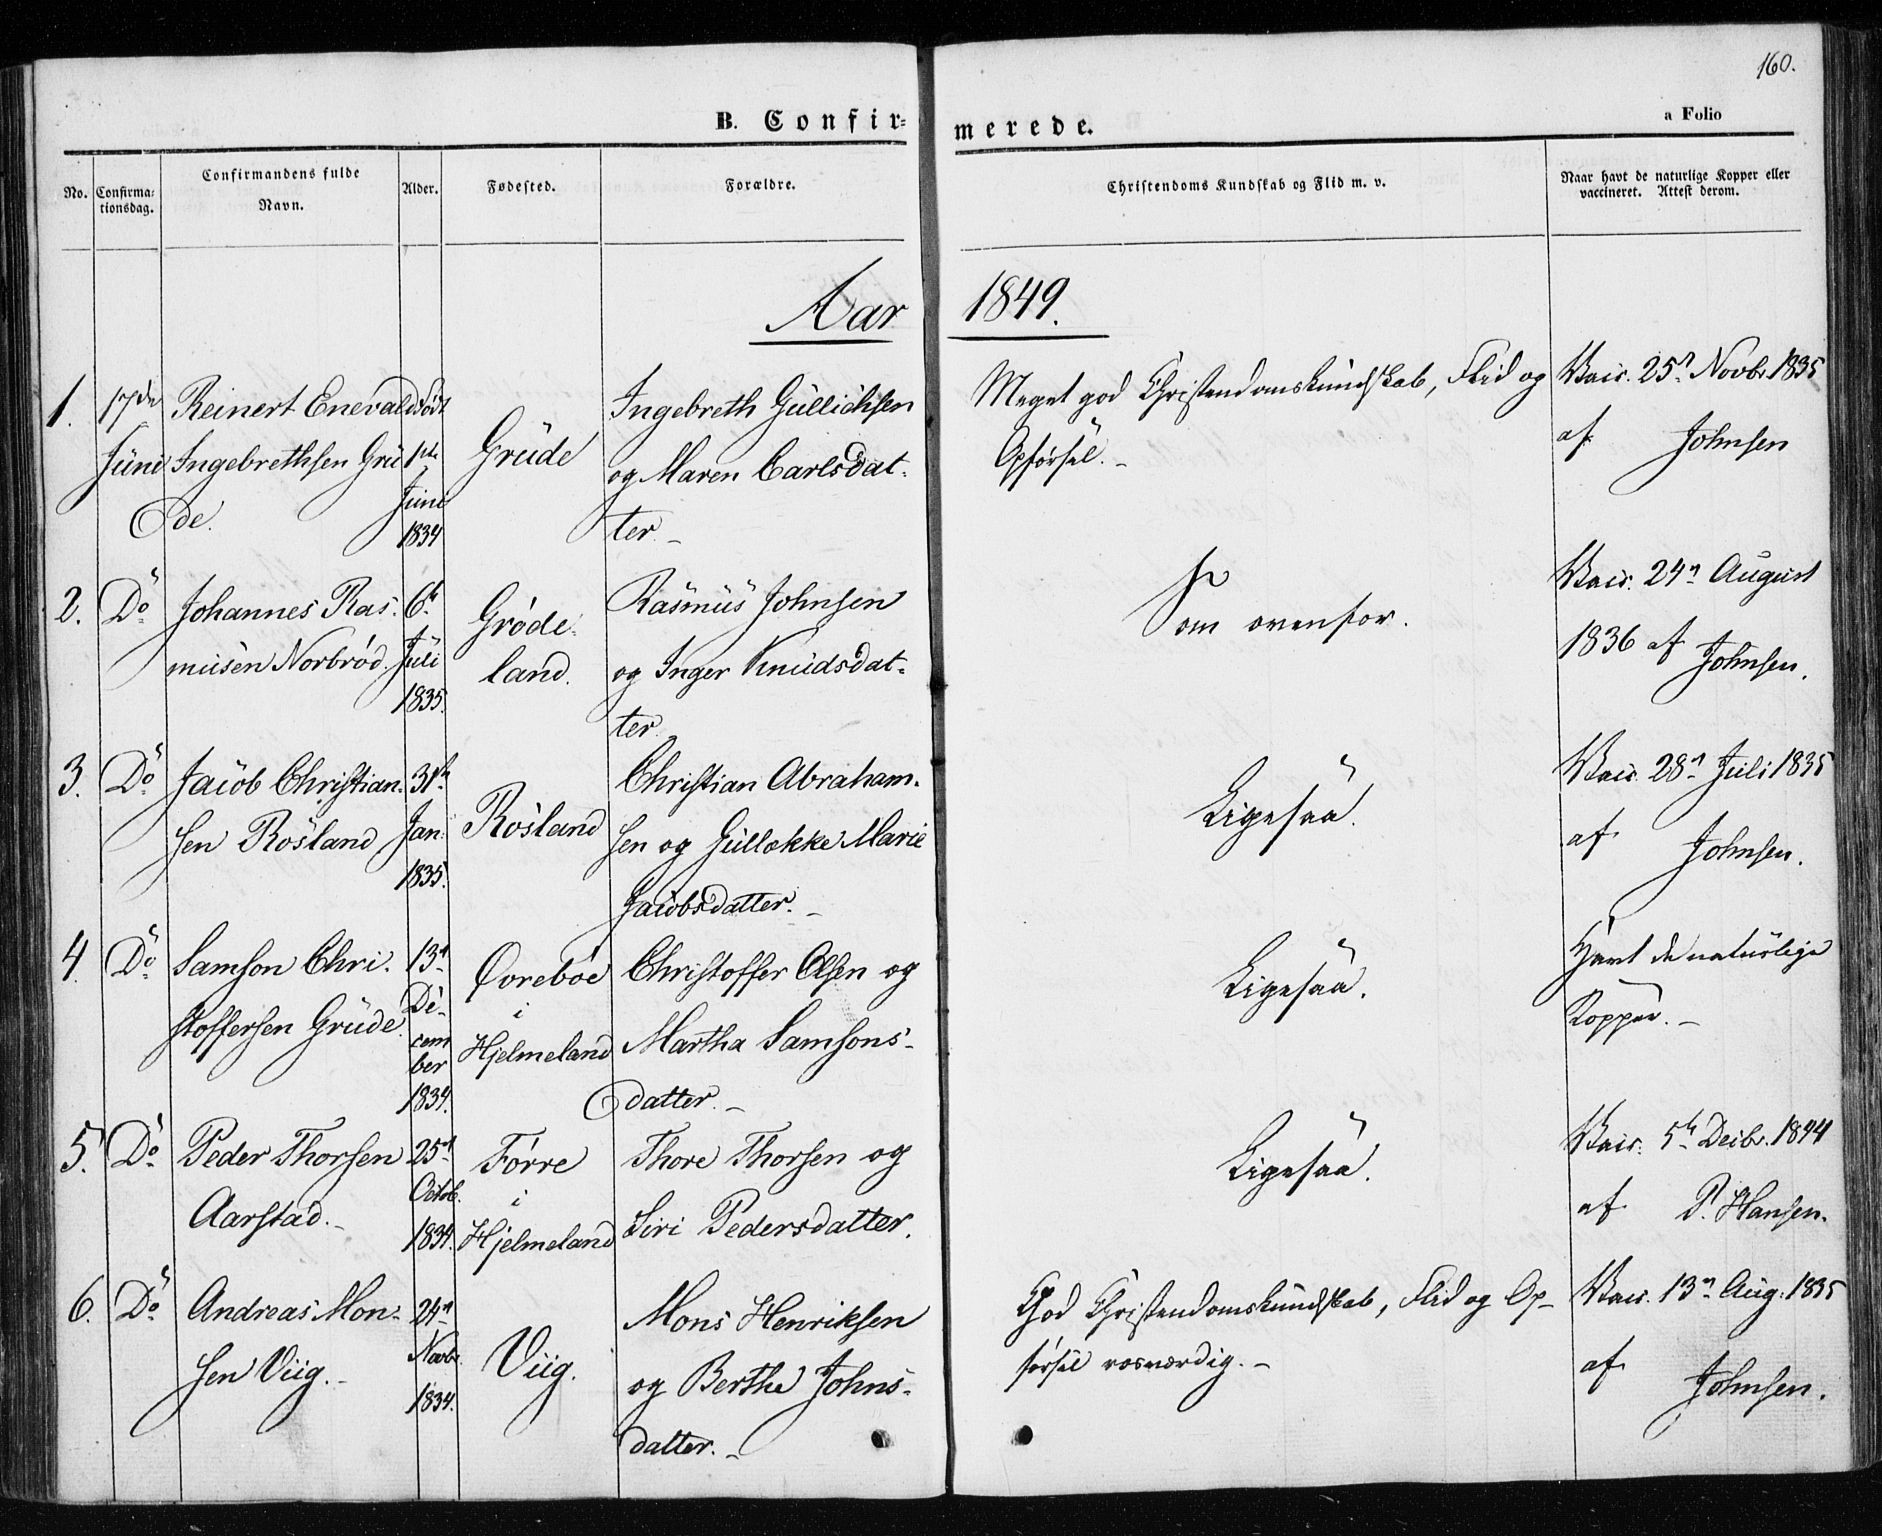 160.
B. Confir=
merede.
a Folio
No.
Confirma=
tionsdag.
Confirmandens fulde
Navn.
Alder.
Fødested.
Forældre.
Christendoms Kundskab og Flid m. v.
Naar havt de naturlige Kopper eller
vaccineret. Attest derom.
Aar 1849.
1.
17de
Juni
Reinert Enevald
Ingebrethsen Gru
de.
født
1ste
Juni
1834
Grude
Ingebreth Gullichsen
og Maren Carlsdat-
ter. –
Meget god Christendomskundskab, Flid og
Opførsel. –
Vacc. 25n Novbr. 1835
af Johnsen
2.
Do
Johannes Ras-
musen Norbrød.
6te
Juli
1835.
Grøde-
land.
Rasmus Johnsen
og Inger Knudsdat-
ter.
Som ovenfor.
Vacc. 24n August
1836 af Johnsen.
3.
Do
Jacob Christian-
sen Rosland
31te
Jan.
1835.
Rosland
Christian Abraham-
sen og Gullække Marie
Jacobsdatter. –
Ligesaa.
Vacc. 28n Juli 1835
af Johnsen.
4.
Do
Samson Chri-
stoffersen Grude.
13n
De-
cem
ber
1834.
Qvrebøe
i
Hjelmeland
Christoffer Olsen og
Martha Samsons-
datter. –
Ligesaa.
Havt de naturlige
Kopper. –
5.
Do
Peder Thorsen
Aarstad. –
25n
Octob.
1834.
Førre
i
Hjelmeland
Thore Thorsen og
Siri Pedersdatter.
Ligesaa.
Vacc. 5te Decbr. 1844
af P. Hansen.
6.
Do
Andreas Mon-
sen Viig. –
24n
Novbr.
1834.
Viig.
Mons Henriksen
og Berthe Johns-
datter. –
God Christendomskundskab, Flid og Op-
førsel rosværdig. –
Vacc. 13n Aug. 1835
af Johnsen.